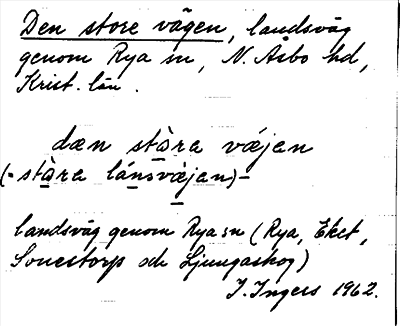 Den store vägen, landsväg
genom Rya sn, N. Åsbo hd,
Krist. län.
dæn stàra væjen
(- stàra lánsvæjan)-
landsväg genom Rya sn (Rya, Eket,
Sonestorp och Ljungaskog)
I. Ingers 1962.